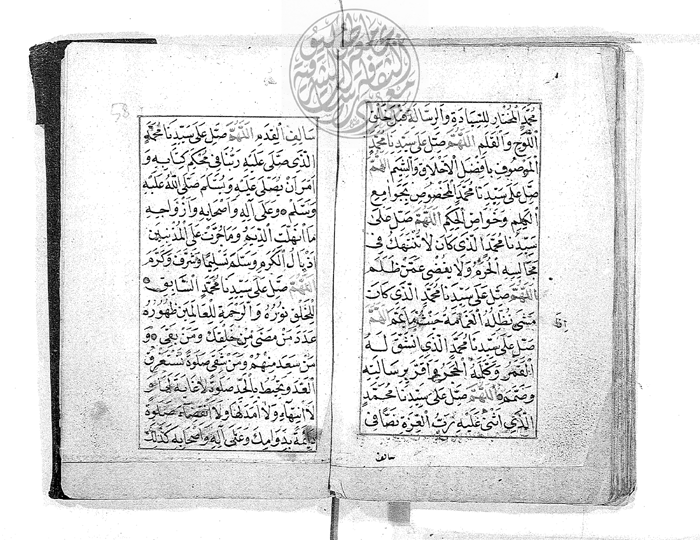 محمد المختار للسيادة والرسالة قبل خلق
اللوح والقلم اللهم صل على سيدنا محمد
الموصوف بأفضل الأخلاق والشيم اللهم
صل على سيدنا محمد المخصوص بجوامع
الكلم وخواص الحكم اللهم صل على
سيدنا محمد الذي كان لا تنتهك في
مجالسه الحرم ولا يغضي عمن ظلم
اللهم صل على سيدنا محمد الذي كان
مشى تظله الغمامة حيثما يمم اللهم
صل على سيدنا محمد الذي انشق له
القمر وكلمه الحجر واقر برسالته
وصمم اللهم صل على سيدنا محمد
الذي اثنى عليه رب العزة نصا في
سالف
58
سالف القدم اللهم صل على سيدنا محمد
الذي صلى عليه ربنا في محكم كتابه و
امر ان يصلى عليه ويسلم صلى الله عليه
وسلم وعلى آله واصحابه وازواجه
ما انهلت الديم وما جرت على المذنبين
اذيال الكرم وسلم تسليما وشرف وكرم
اللهم صل على سيدنا محمد السابق
للخلق نوره والرحمة للعالمين ظهوره
عدد من مضى من خلقك ومن بقي و
من سعد منهم ومن شقي صلوة تستغرق
العد وتحيط بالحد صلوة لا غاية لها و
لا انتهاء ولا امد لها ولا انقضاء صلوة
دائمة بدوامك وعلى آله واصحابه كذلك